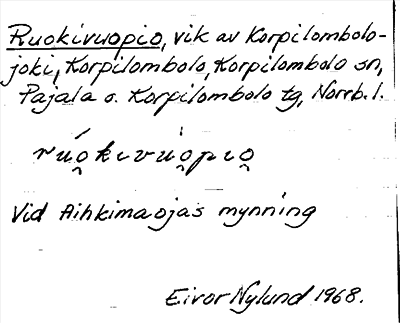 Ruokivuopio, vik av Korpilombolo-
joki, Korpilombolo, Korpilombolo sn,
Pajala o. Korpilombolo tg, Norrb. l.
rúo̯kivúo̯pio̯
Vid Aihkimaojas mynning
Eivor Nylund 1968.